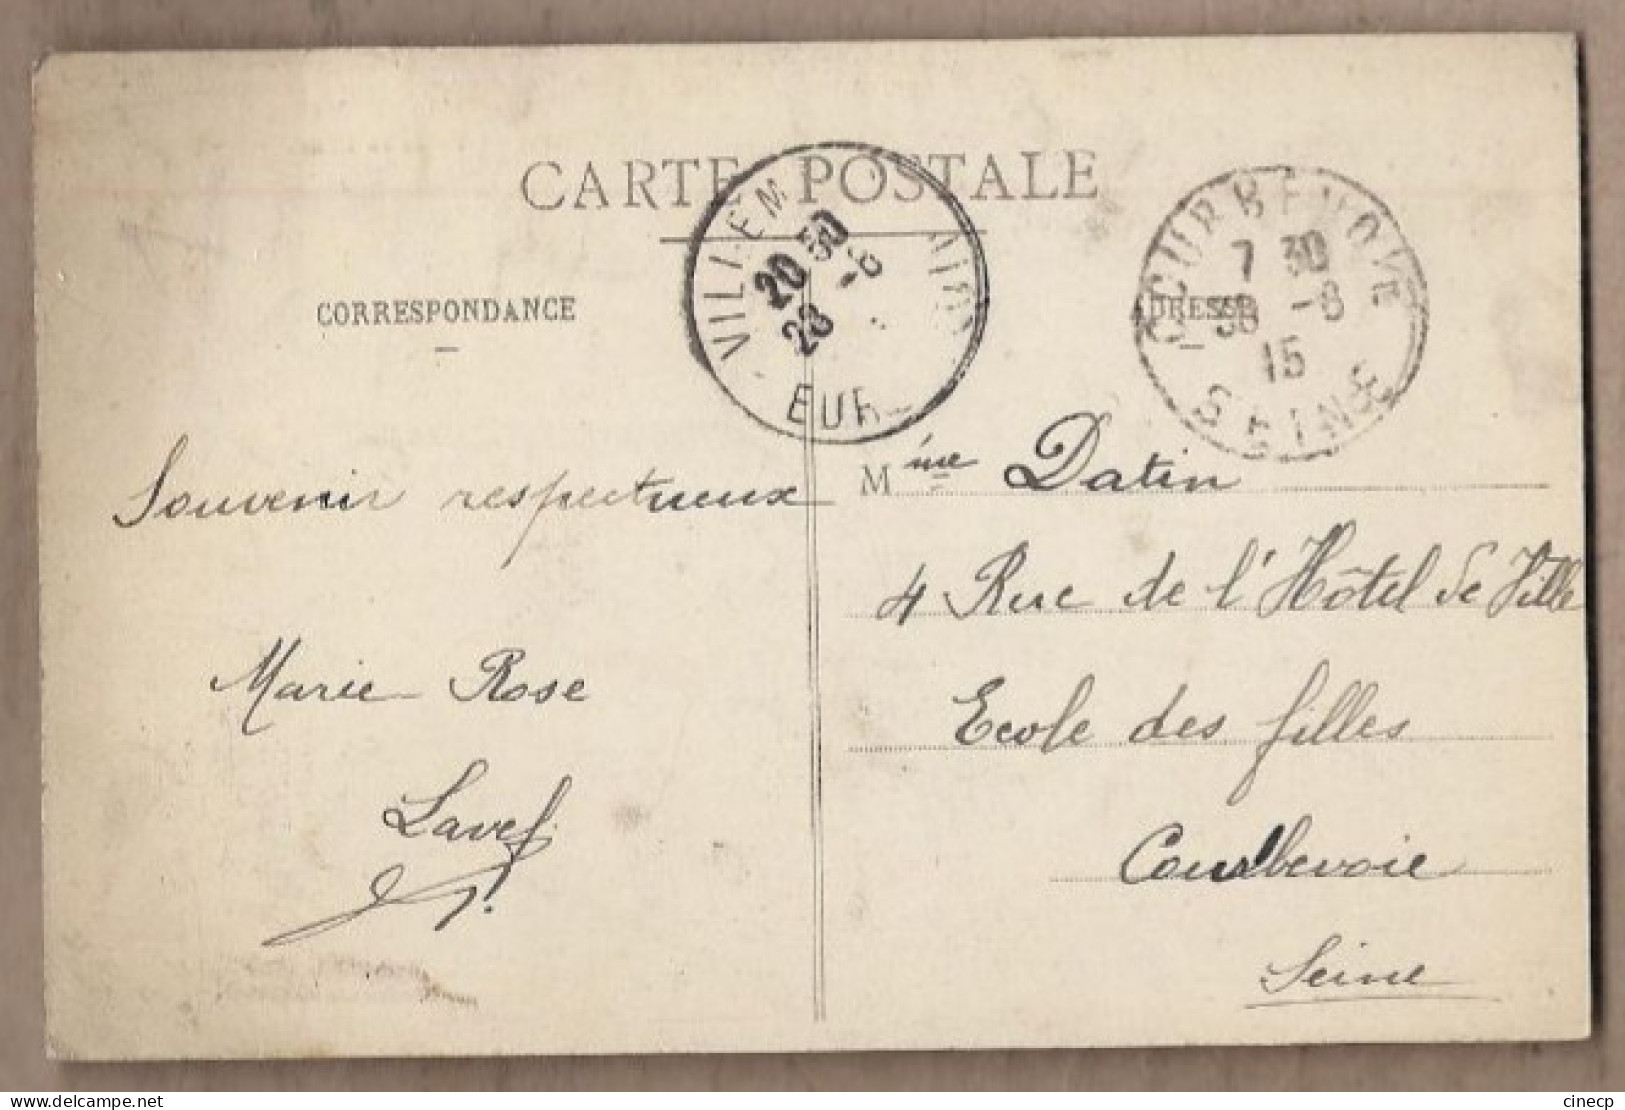 CARTE POSTALE
CORRESPONDANCE
ADRESSE
20 30
-8
EUR
COURBEVOIE
7 30
30 -8
15
SEINE
Souvenir respectueux
Marie Rose
Mme Datin
4 Rue de l'Hôtel de Ville
Ecole des filles
Courbevoie
Seine
delcampe.net
cinecp